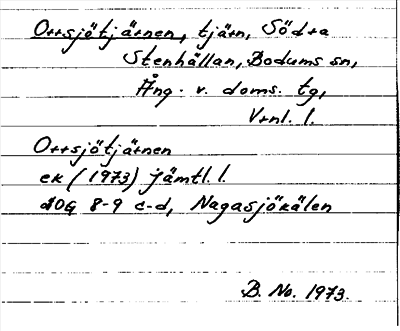 Orrsjötjärnen, tjärn, Södra
Stenhällan, Bodums sn,
Ång. v. doms. tg,
Vrnl. l.
Orrsjötjärnen
ek (1973) Jämtl. l.
20G 8-9 c-d, Nagasjökälen
B. No. 1973.